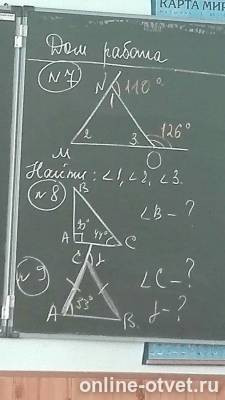 КАРТА МИР
Дом работа
№7
N
1
110°
2
3
126°
M
O
Найти: ∠1, ∠2, ∠3.
№8
B
∠B - ?
A
44°
C
№9
C
∠C - ?
53°
A
B
online-otvet.ru